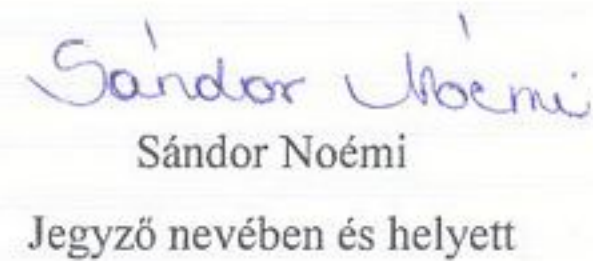 Sándor Noémi
Sándor Noémi
Jegyző nevében és helyett